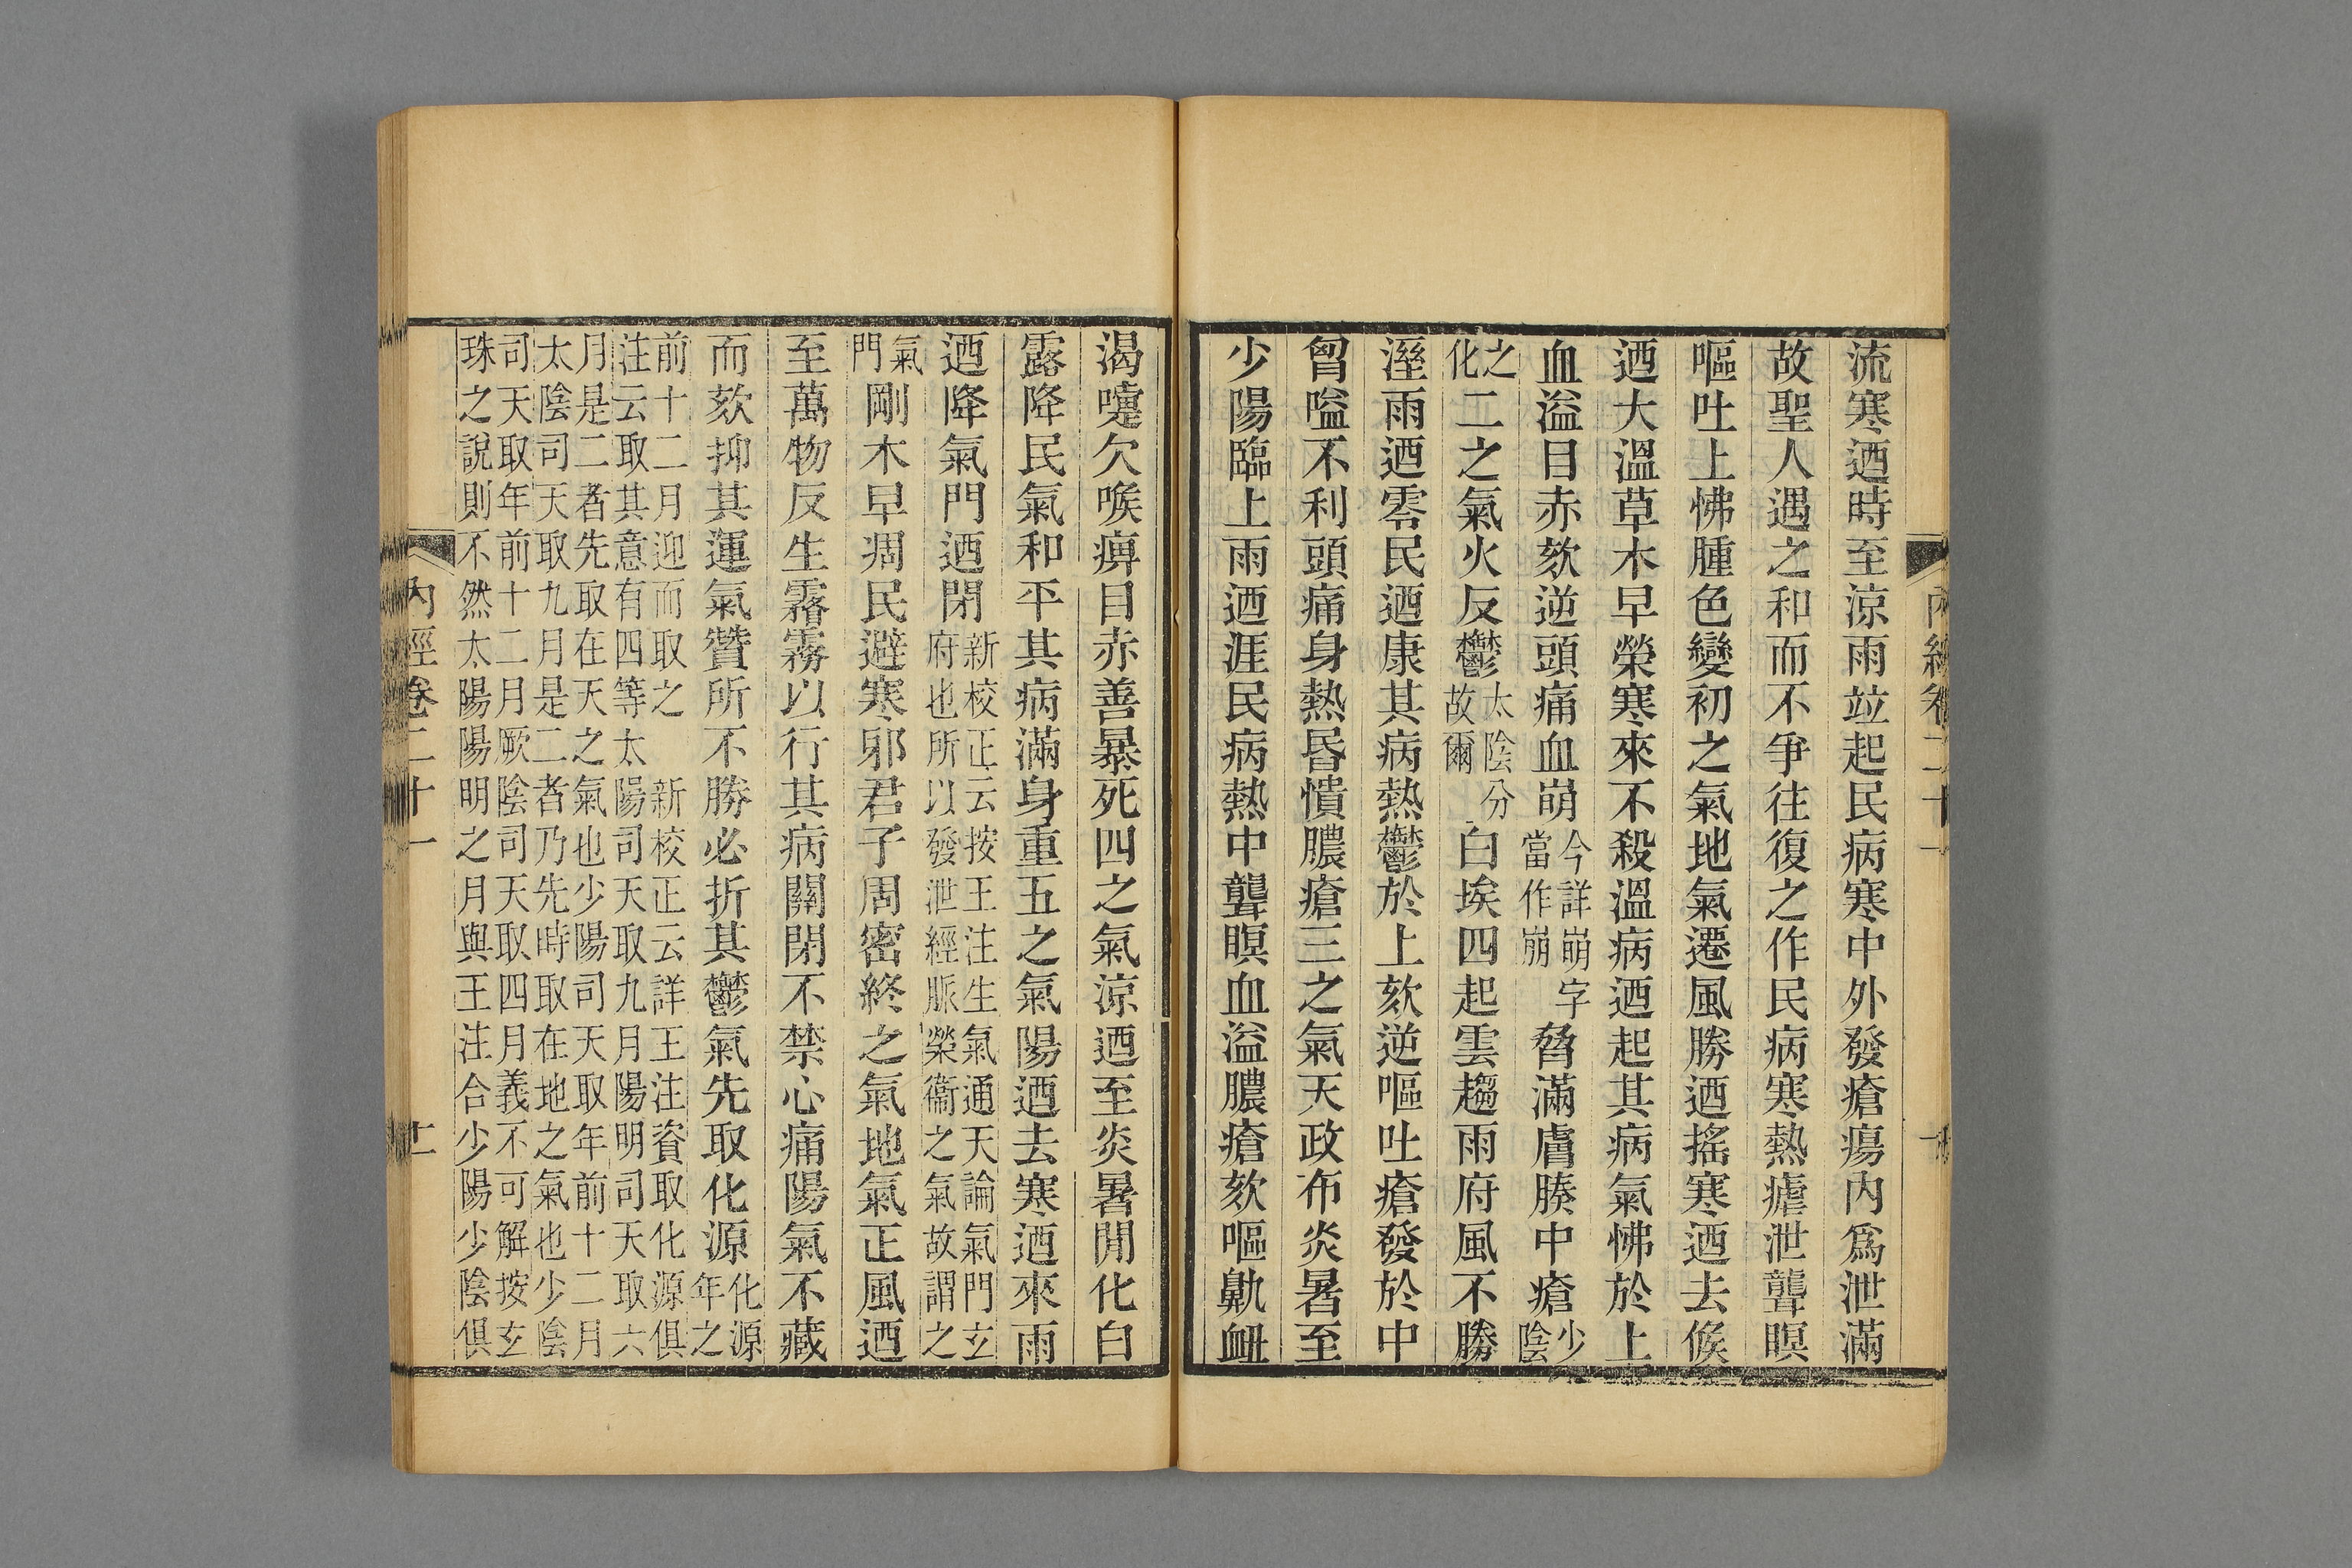 流寒迺時至涼雨竝起民病寒中外發瘡瘍內爲泄滿
故聖人遇之和而不爭往復之作民病寒熱瘧泄聾瞑
嘔吐上怫腫色變初之氣地氣遷風勝迺搖寒迺去候
迺大溫草木早榮寒來不殺溫病迺起其病氣怫於上
血溢目赤欬逆頭痛血崩今詳崩字當作崩脅滿膚腠中瘡少陰
之化二之氣火反鬱太陰分故爾白埃四起雲趨雨府風不勝
溼雨迺零民迺康其病熱鬱於上欬逆嘔吐瘡發於中
胷嗌不利頭痛身熱昬憒膿瘡三之氣天政布炎暑至
少陽臨上雨迺涯民病熱中聾瞑血溢膿瘡欬嘔鼽衄
渴嚏欠喉痹目赤善暴死四之氣涼迺至炎暑閒化白
露降民氣和平其病滿身重五之氣陽迺去寒迺來雨
迺降氣門迺閉新校正云按王注生氣通天論氣門玄府也所以發泄經脈榮衞之氣故謂之
氣門剛木早凋民避寒邪君子周密終之氣地氣正風迺
至萬物反生霿霧以行其病關閉不禁心痛陽氣不藏
而欬抑其運氣贊所不勝必折其鬱氣先取化源化源年之
前十二月迎而取之新校正云詳王注資取化源俱
注云取其意有四等太陽司天取九月陽明司天取六
月是二者先取在天之氣也少陽司天取年前十二月
太陰司天取九月是二者乃先時取在地之氣也少陰
司天取年前十二月厥陰司天取四月義不可解按玄
珠之說則不然太陽陽明之月與王注合少陽少陰俱
內經卷二十一
十一